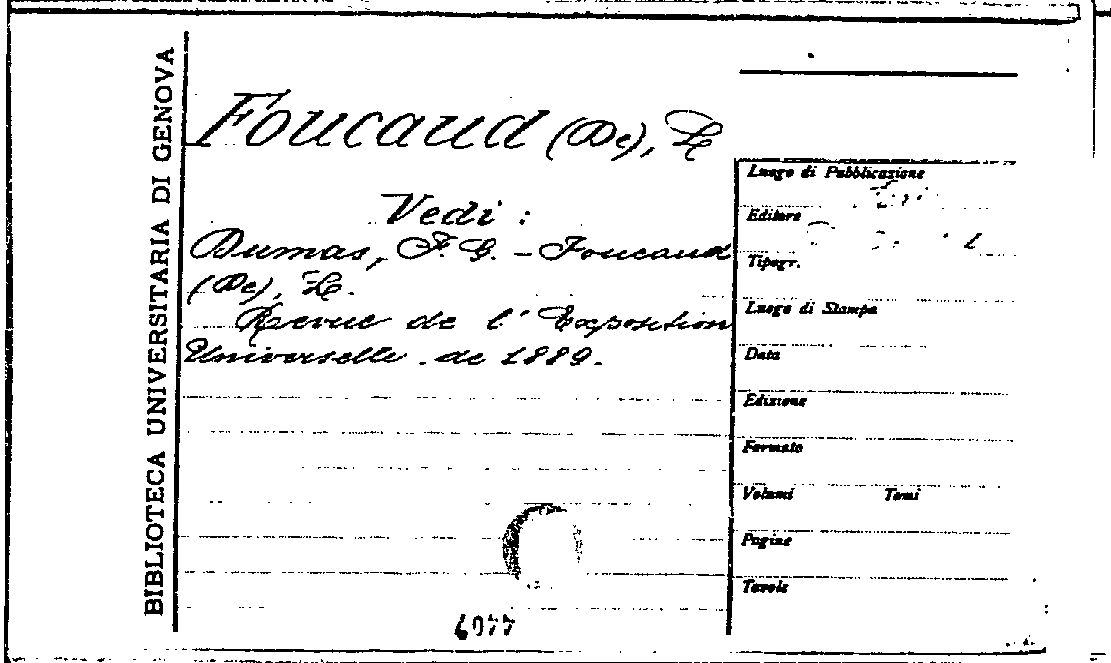 BIBLIOTECA UNIVERSITARIA DI GENOVA
Foucaud (De), L
Vedi :
Dumas, F. G. - Foucaud
(De), L.
Revue de l' Exposition
Universelle de 1889.
Luogo di Pubblicazione
Editore
Tipogr.
Luogo di Stampa
Data
Edizione
Formato
Volumi Tomi
Pagine
Tavole